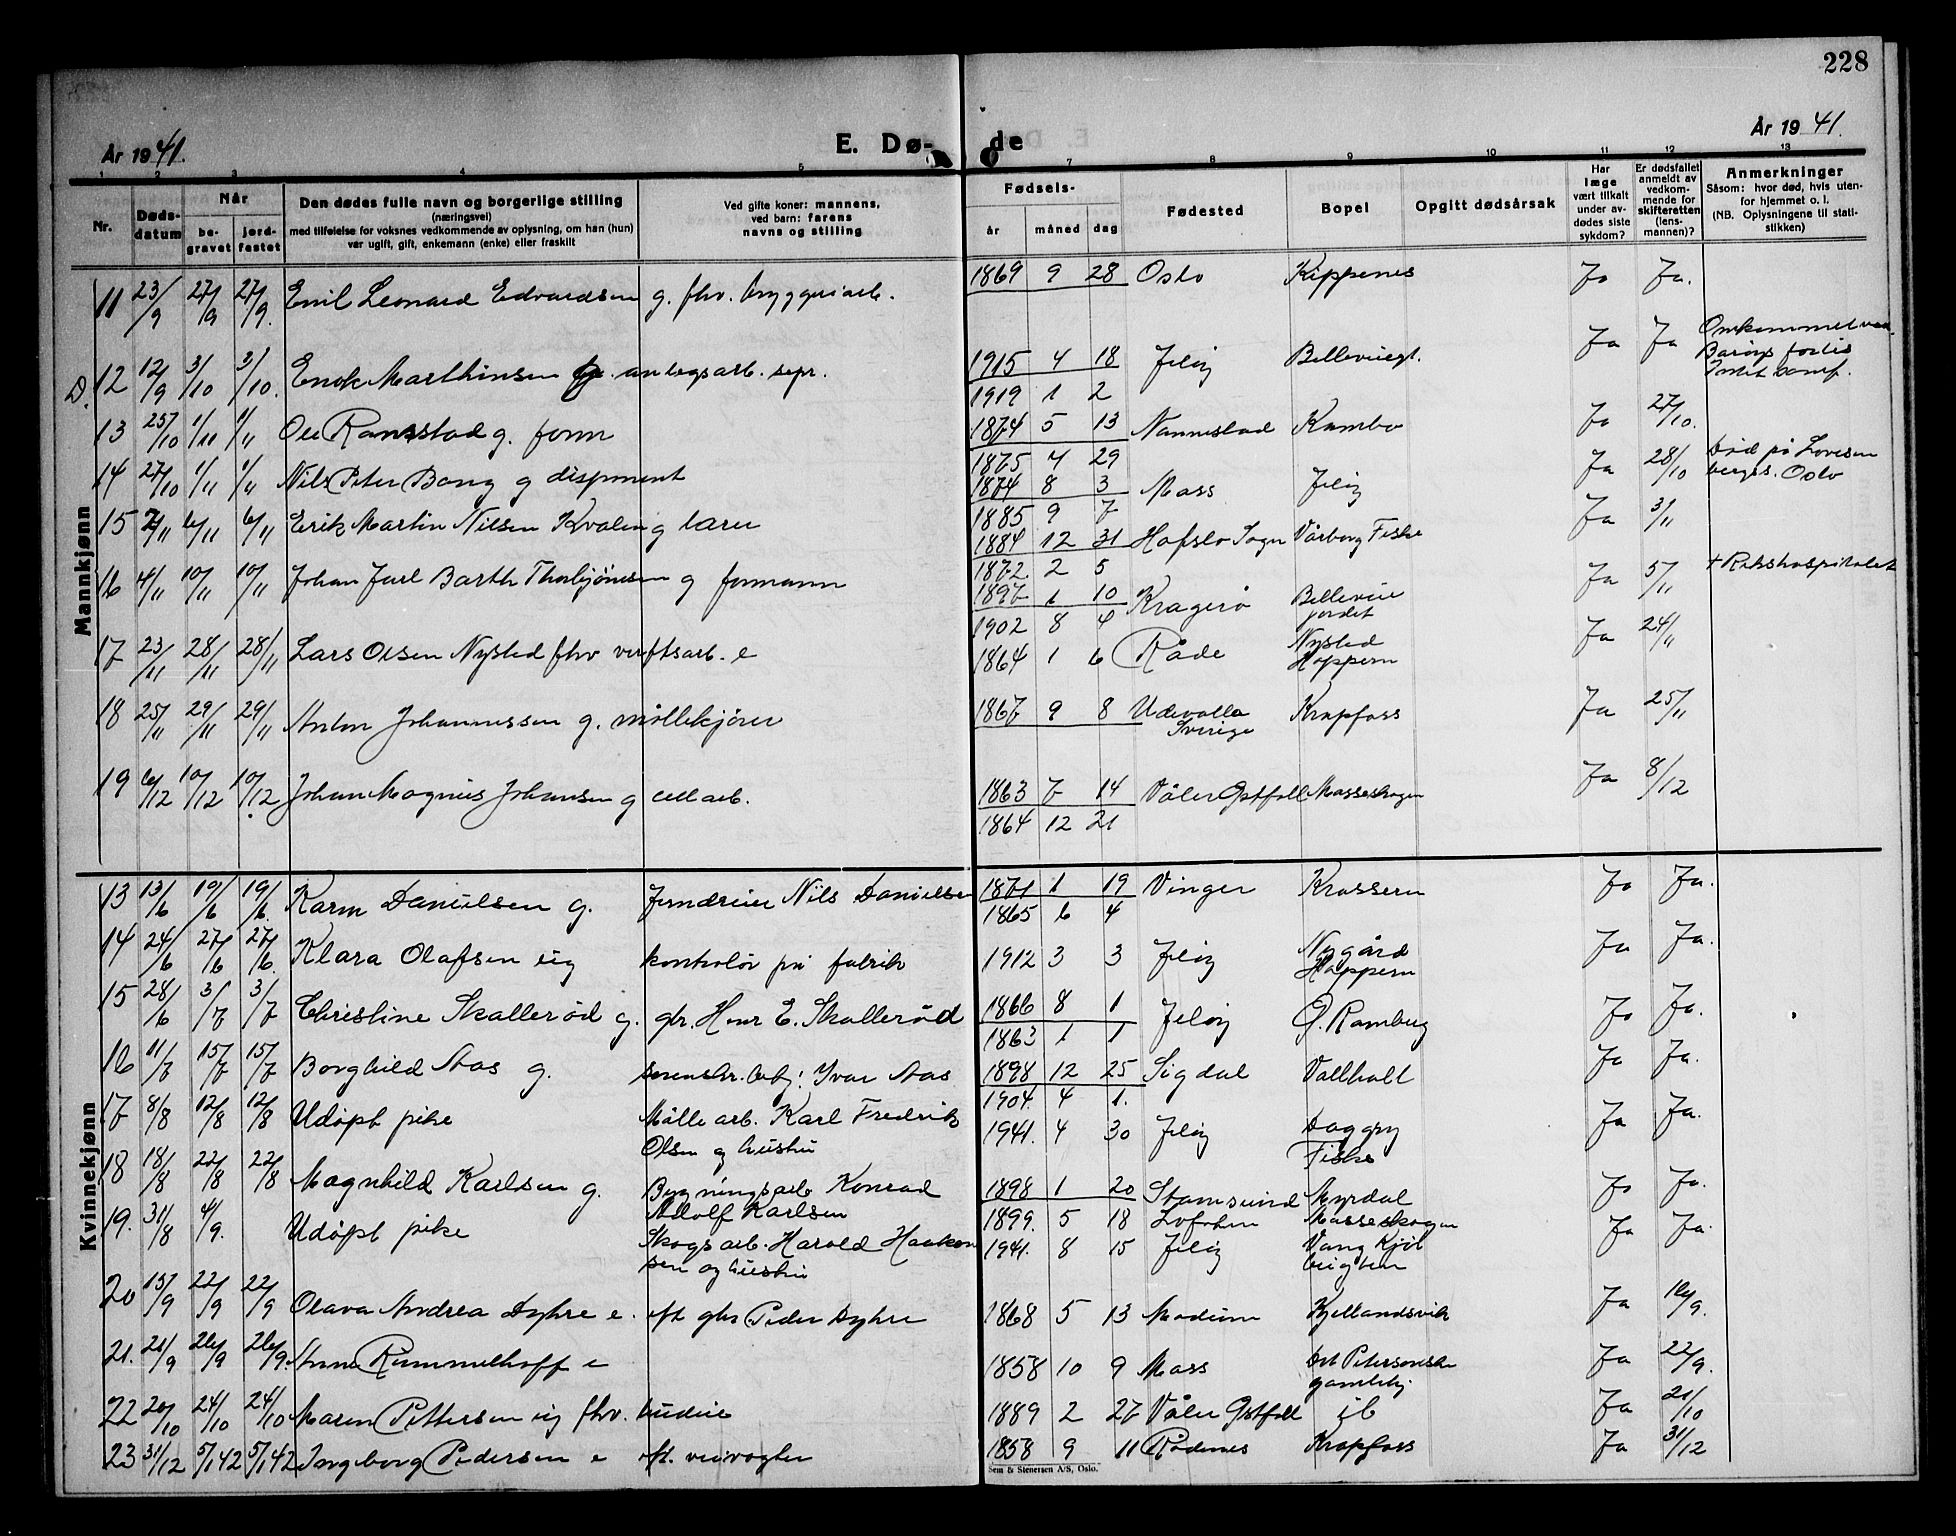 228
År 1941.
E. Døde
År 1941.
1 2 3 4 5 7 8 9 10 11 12 13
Nr.
Dødsdatum
Når
begravet
jordfestet
Den dødes fulle navn og borgerlige stilling
(næringsvei)
med tilføielse for voksnes vedkommende av oplysning, om han (hun)
var ugift, gift, enkemann (enke) eller fraskilt
Ved gifte koner: mannens,
ved barn: farens
navns og stilling
Fødsels-
år
måned
dag
Fødested
Bopel
Opgitt dødsårsak
Har
læge
vært tilkalt
under av-
dødes siste
sykdom?
Er dødsfallet
anmeldt av
vedkom-
mende for
skifteretten
(lens-
mannen)?
Anmerkninger
Såsom: hvor død, hvis uten-
for hjemmet o. l.
(NB. Oplysningene til stati-
stikken)
Mannkjønn
11 23/9 27/9 27/9. Emil Leonard Edvardsen g. fhv. bryggeriarb. 1869 9 28 Oslo Kippenes Ja Ja.
D. 12 12/9 3/10 3/10. Enok Marthinsen g. anlegsarb. sepr. 1915 4 18 Jeløy Ja Ja
1919 1 2
13 25/10 1/11 1/11 Ole Ramstad g. form 1874 5 13 Nannestad Kambo Ja 27/10.
1875 4 29
14 27/10 1/11 1/11 Nils Peter Bang g disponent 1874 8 3 Moss Jeløy Ja 28/10 Død på Lovisen
bergs. Oslo
1885 9 7
15 2/11 6/11 6/11 Erik Martin Nilsen Kvalen g lærer 1884 12 31 Hafslo Sogn Vårborg Fiske Ja 3/11
1872 2 5
16 4/11 10/11 10/11 Johan Jarl Barth Thorbjørnsen g formann 1897 1 10 Kragerø Bellevue
jordet Ja 5/11 + Rikshospitalet
1902 8 4
17 23/11 28/11 28/11 Lars Olsen Nysted fhv verftsarb. e 1864 1 6 Råde Nysted
Hoppern Ja 24/11
18 25/11 29/11 29/11 Anton Johannessen g. møllekjører 1867 9 8 Udevalla
Sverige Krapfoss Ja 25/11
19 6/12 10/12 10/12 Johan Magnus Johansen g cell arb. 1863 7 14 Våler Østfoll Mosseskogen Ja 8/12
1864 12 21
Kvinnekjønn
13 13/6 19/6 19/6. Karen Danielsen g. Nils Danielsen 1871 1 19 Vinger Krossern Ja Ja.
1865 6 4
14 24/6 27/6 27/6. Klara Olafsen ug kontrolør på fabrik 1912 3 3 Jeløy Nygård
Hoppern Ja Ja.
15 28/6 3/7 3/7 Christine Skallerød g. gbr. Hans E. Skallerød 1866 8 1 Jeløy Ø. Ramberg Ja Ja.
1863 1 1
16 11/7 15/7 15/7 Borghild Aas g. Ivar Aas 1898 12 25 Sigdal Vallhall Ja Ja.
1904 4 1.
17 8/8 12/8 12/8 Udøpt pike Mølle arb. Karl Fredrik
Olsen og hustru 1941. 4 30 Jeløy Daggry
Fiske Ja Ja.
18 18/8 22/8 22/8 Magnhild Karlsen g. Bygningsarb Konrad
Adolf Karlsen 1898 1 20 Stamsund
Lofoten Myrdal
Mosseskogen Ja Ja.
1899. 5 18
19. 31/8 4/9. Udøpt pike Skogsarb. Harald Haakon
sen og hustru 1941. 8 15 Jeløy Vang Ja Ja.
20 15/9 22/9 22/9 Olava Andrea Dyhre e. aft gbr Peder Dyhre 1868 5 13 Modum Kjellandsvik Ja 16/9.
21. 21/9 26/9 26/9. Anna Rummelhoff e 1858 10 9 Moss Det Petersonske
gamlehj. Ja 22/9.
22 20/10 24/10 24/10 Maren Pettersen ug fhv. budeie 1889 2 27 Våler Østfoll ib Ja 21/10
23 31/12 5/1 42 5/1 42 Ingeborg Pedersen e aft. veivogter 1858 9 11 Rødenes Krapfoss Ja 31/12
Sem & Stenersen A/S, Oslo.